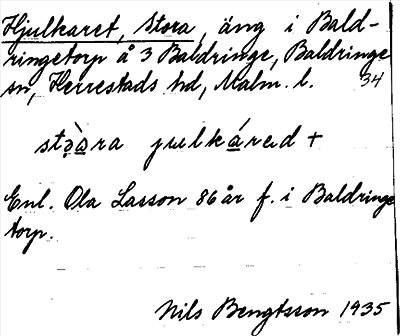 Hjulkaret, Stora, äng i Bald-
ringetorp å 3 Baldringe, Baldringe
sn, Herrestads hd, Malm. l. 34
julkáred +
Enl. Ola Lasson 86 år f. i Baldringe
torp.
Nils Bengtsson 1935